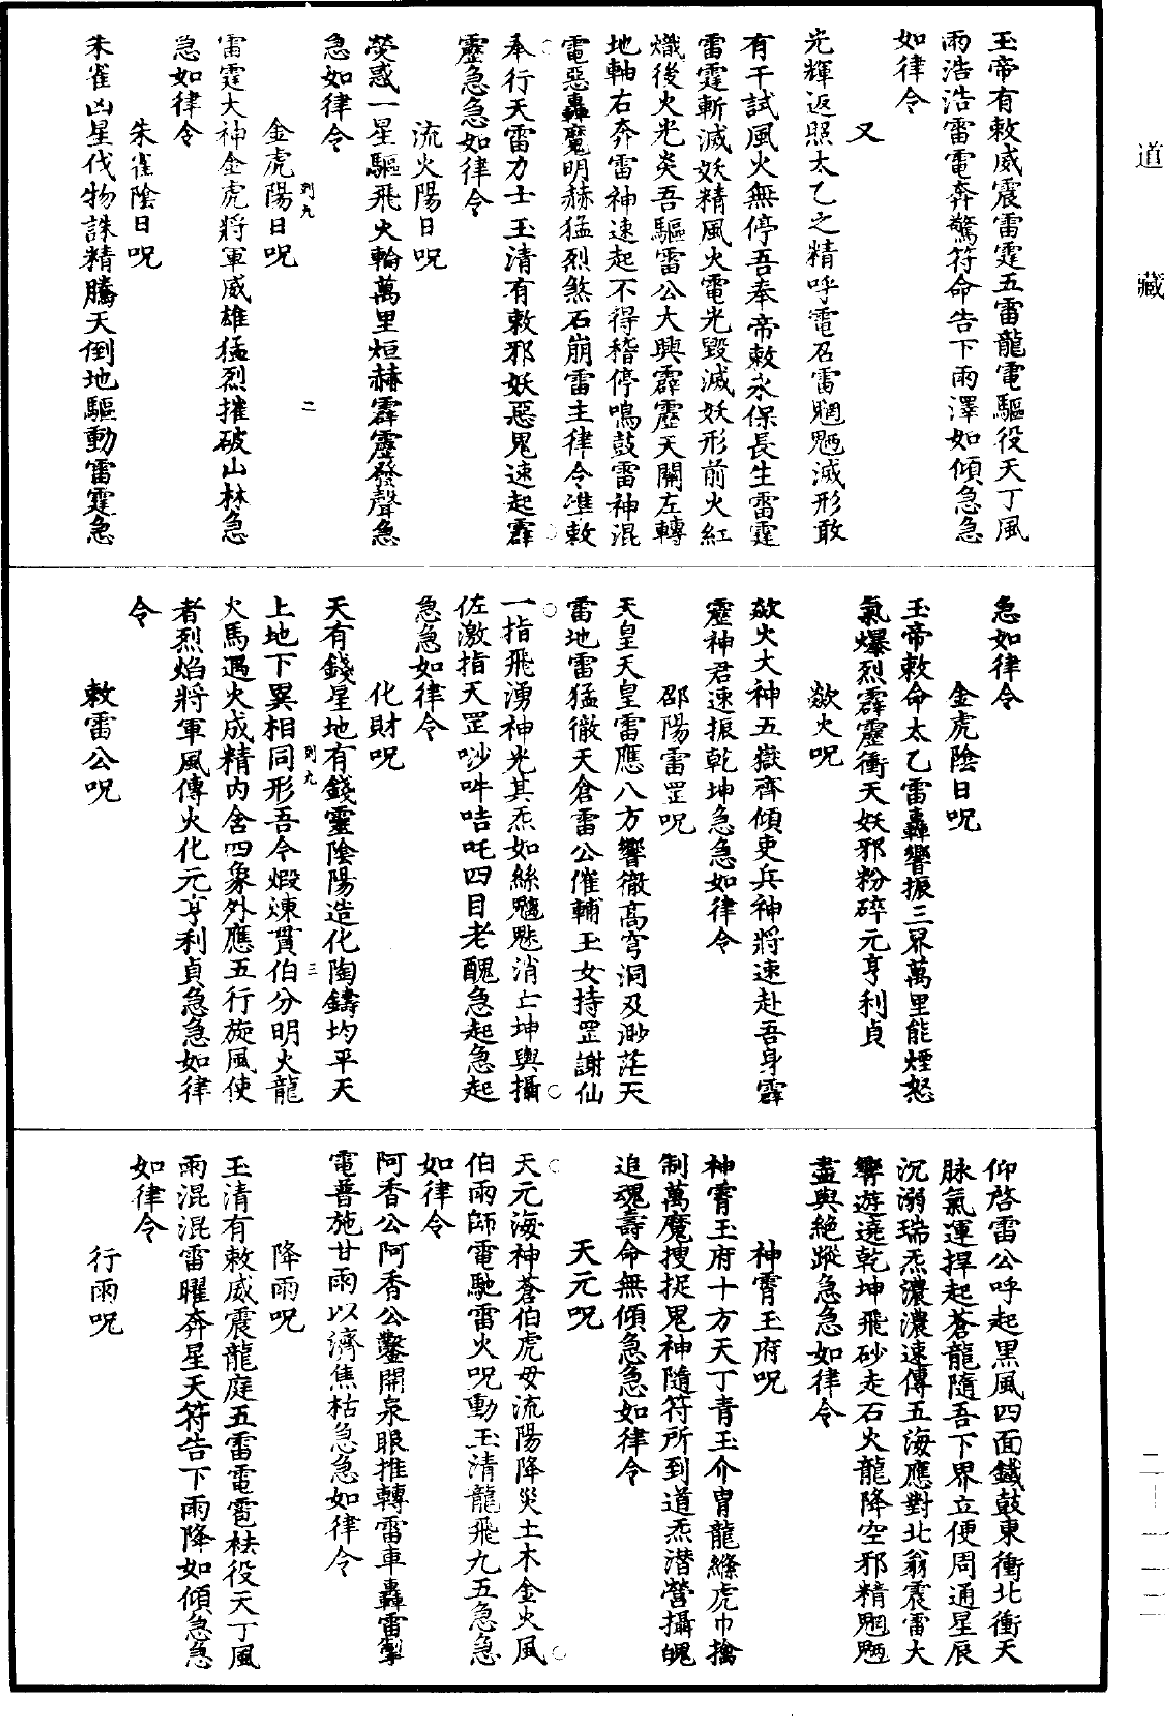 道藏
玉帝有敕威震雷霆五雷龍電驅役天丁風
雨浩浩雷電奔驚符命告下雨澤如傾急急
如律令
又
光輝返照太乙之精呼電召雷魍魎滅形敢
有干試風火無停吾奉帝敕永保長生雷霆
雷霆斬滅妖精風火電光毀滅妖形前火紅
熾後火光炎吾驅雷公大興霹靂天關左轉
地軸右奔雷神速起不得稽停鳴鼓雷神混
電惡轟魔明赫猛烈煞石崩雷主律令準敕
奉行天雷力士玉清有敕邪妖惡鬼速起霹
靂急急如律令
流火陽日呪
熒惑一星驅飛火輪萬里烜赫霹靂發聲急
急如律令
金虎陽日呪
雷霆大神金虎將軍威雄猛烈摧破山林急
急如律令
朱雀陰日呪
朱雀凶星伐物誅精騰天倒地驅動雷霆急
急如律令
金虎陰日呪
玉帝敕命太乙雷轟響振三界萬里能煙怒
氣爆烈霹靂衝天妖邪粉碎元亨利貞
歘火呪
歘火大神五嶽齊傾吏兵神將速赴吾身霹
靂神君速振乾坤急急如律令
邵陽雷罡呪
天皇天皇雷應八方響徹高穹洞及渺茫天
雷地雷猛徹天倉雷公催輔玉女持罡謝仙
一指飛湧神光其炁如絲魑魅消亡坤輿攝
佐激指天罡吵吽咭吒四目老醜急起急起
急急如律令
化財呪
天有錢星地有錢靈陰陽造化陶鑄均平天
上地下異相同形吾今煆煉貫伯分明火龍
火馬遇火成精內含四象外應五行旋風使
者烈焰將軍風傳火化元亨利貞急急如律
令
敕雷公呪
仰啓雷公呼起黑風四面鐵鼓東衝北衝天
脉氣運捍起蒼龍隨吾下界立便周通星辰
沉溺瑞炁濃濃速傳五海應對北翁震雷大
響遊遶乾坤飛砂走石火龍降空邪精魍魎
盡與絕蹤急急如律令
神霄玉府呪
神霄玉府十方天丁青玉介胄龍縧虎巾擒
制萬魔搜捉鬼神隨符所到道炁潜營攝魄
追魂壽命無傾急急如律令
天元呪
天元海神蒼伯虎母流陽降災土木金火風
伯雨師電馳雷火呪動玉清龍飛九五急急
如律令
阿香公阿香公鑿開泉眼推轉雷車轟雷掣
電普施甘雨以濟焦枯急急如律令
降雨呪
玉清有敕威震龍庭五雷電雹袪役天丁風
雨混混雷曜奔星天符告下雨降如傾急急
如律令
行雨呪